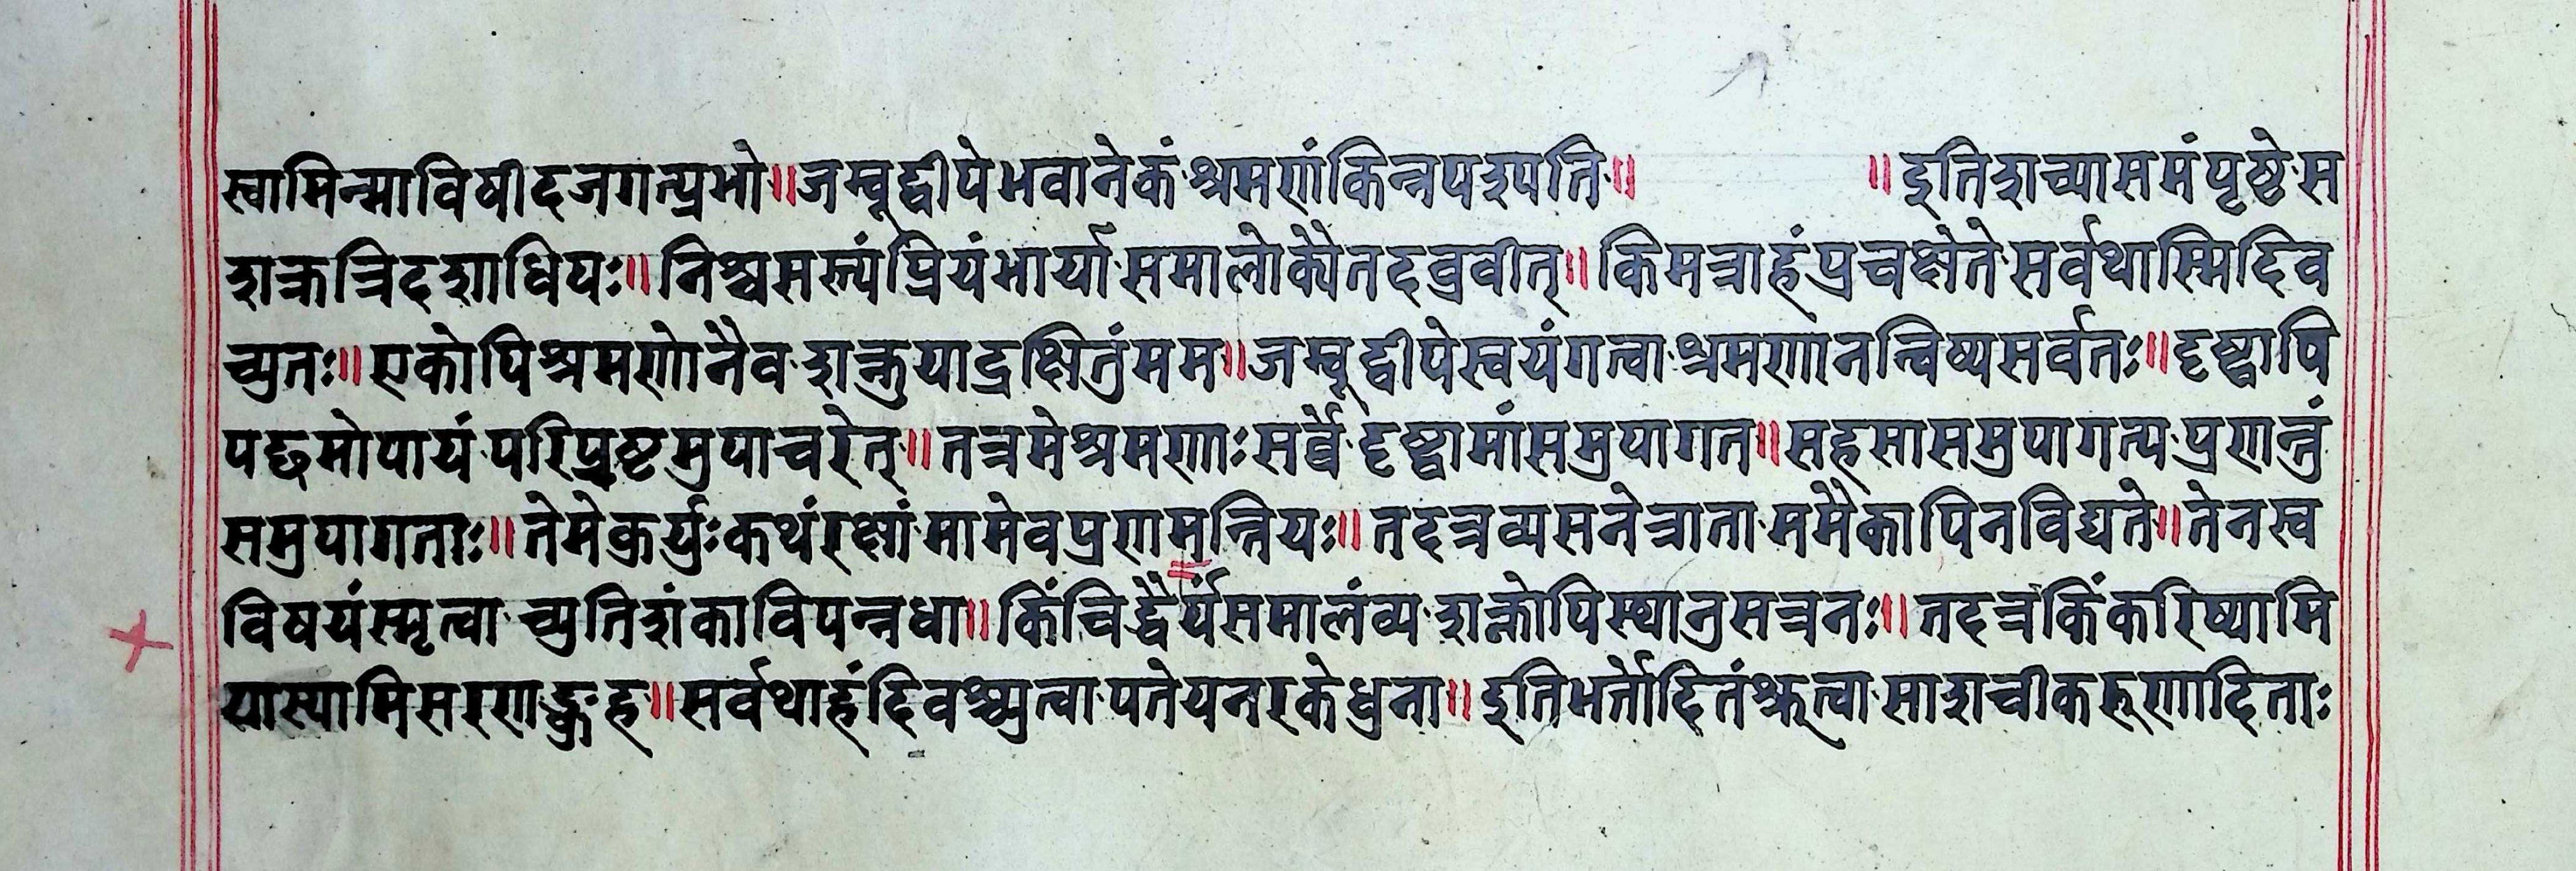 स्वामिन्माविषीदजगत्प्रभो॥जम्बूद्वीपेभवानेकं श्रमणंकिन्नपश्यति॥ ॥इतिशच्यासमंपृष्ठे स
शक्रत्रिदशाधिपः॥निश्वसस्त्यंप्रियंभार्या समालोक्यैतदब्रवीत्॥किमत्राहंप्रचक्षेते सर्वथास्मिदिव
च्युतः॥एकोपिश्रमणोनैव शक्नुयाद्रक्षितुंमम॥जम्बूद्वीपेस्वयंगत्वा श्रमणानन्विष्यसर्वतः॥दृष्ट्वापि
पद्छमोपायं परिप्रष्टमुपाचरेत्॥तत्रमेश्रमणाः सर्वे दृष्ट्वामांसमुपागत॥सहसासमुपागत्य प्रणन्तुं
समुपागताः॥तेमेकुर्युः कथंरक्षां मामेवप्रणमन्तियः॥तदत्रव्यसनेत्राता ममैकापिनविद्यते॥तेनस्व
विषयंस्मृत्वा च्युतिशंकाविपन्नधा॥किंचिद्धैर्यंसमालंव्य शक्रोपिस्थानुसत्रनः॥तदत्रकिंकरिष्यामि
यास्यामिसरणङ्कुह॥सर्वथाहंदिवश्च्युत्वा पतेयनरकेधुना॥इतिभर्तोदितंश्रुत्वा साशचीकरूणादिताः